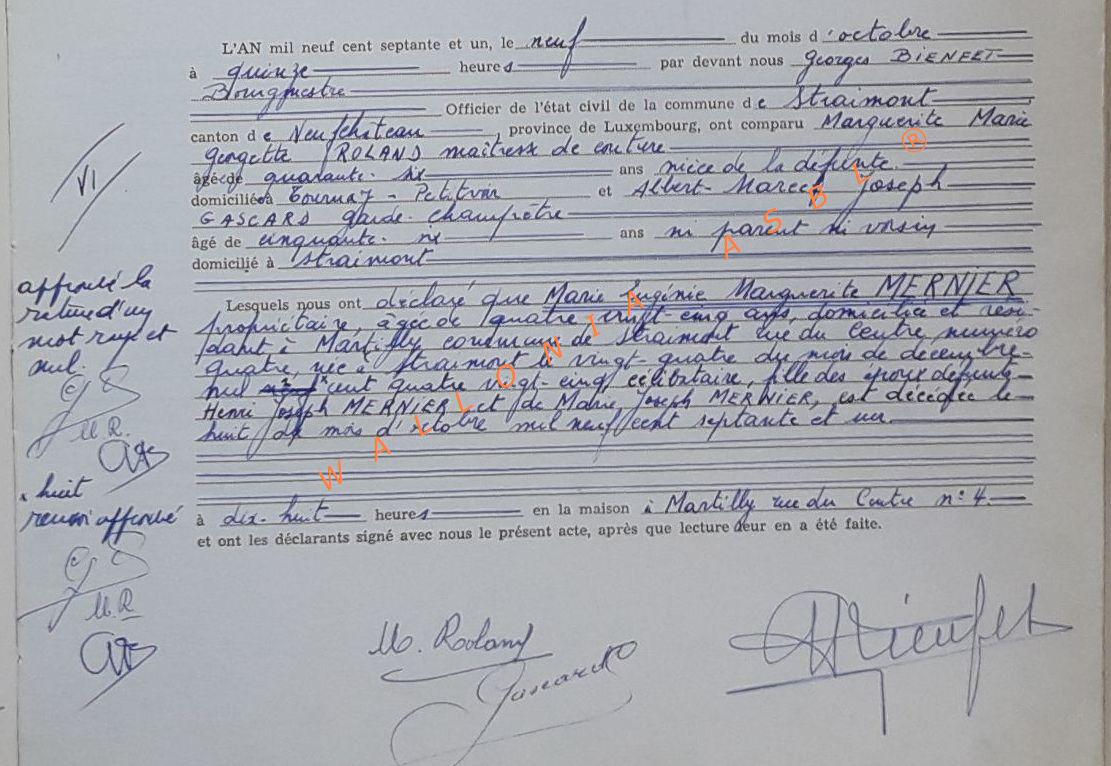 L'AN mil neuf cent septante et un, le neuf du mois d'octobre
à quinze heures par devant nous Georges BIENFET
Bourgmestre
Officier de l'état civil de la commune de Straimont
canton de Neufchâteau, province de Luxembourg, ont comparu Marguerite Marie
Georgette ROLAND maîtresse de couture
âgée de quarante-six ans nièce de la défunte
domiciliée à Tournay - Petitvoir et Albert-Marcel Joseph
GASCARD garde-champêtre
âgé de cinquante-six ans ni parent ni voisin
domicilié à Straimont
Lesquels nous ont déclaré que Marie Eugénie Marguerite MERNIER
propriétaire, âgée de quatre vingt-cinq ans, domiciliée et rési-
dant à Martilly commune de Straimont rue du Centre, numéro
quatre, née à Straimont le vingt-quatre du mois de décembre
mil x cent quatre vingt-cinq célibataire, fille des époux défunts
Henri Joseph MERNIER et de Marie Joseph MERNIER, est décédée le
huit du mois d'octobre mil neuf cent septante et un
à dix-huit heures en la maison à Martilly rue du Centre n° 4
et ont les déclarants signé avec nous le présent acte, après que lecture leur en a été faite.
VI
approuvé la
rature d'un
mot rayé et
nul.
M.R.
x huit
renvoi approuvé
M.R
M. Roland
Gascard
Bienfet
WALLONIA ASBL ®